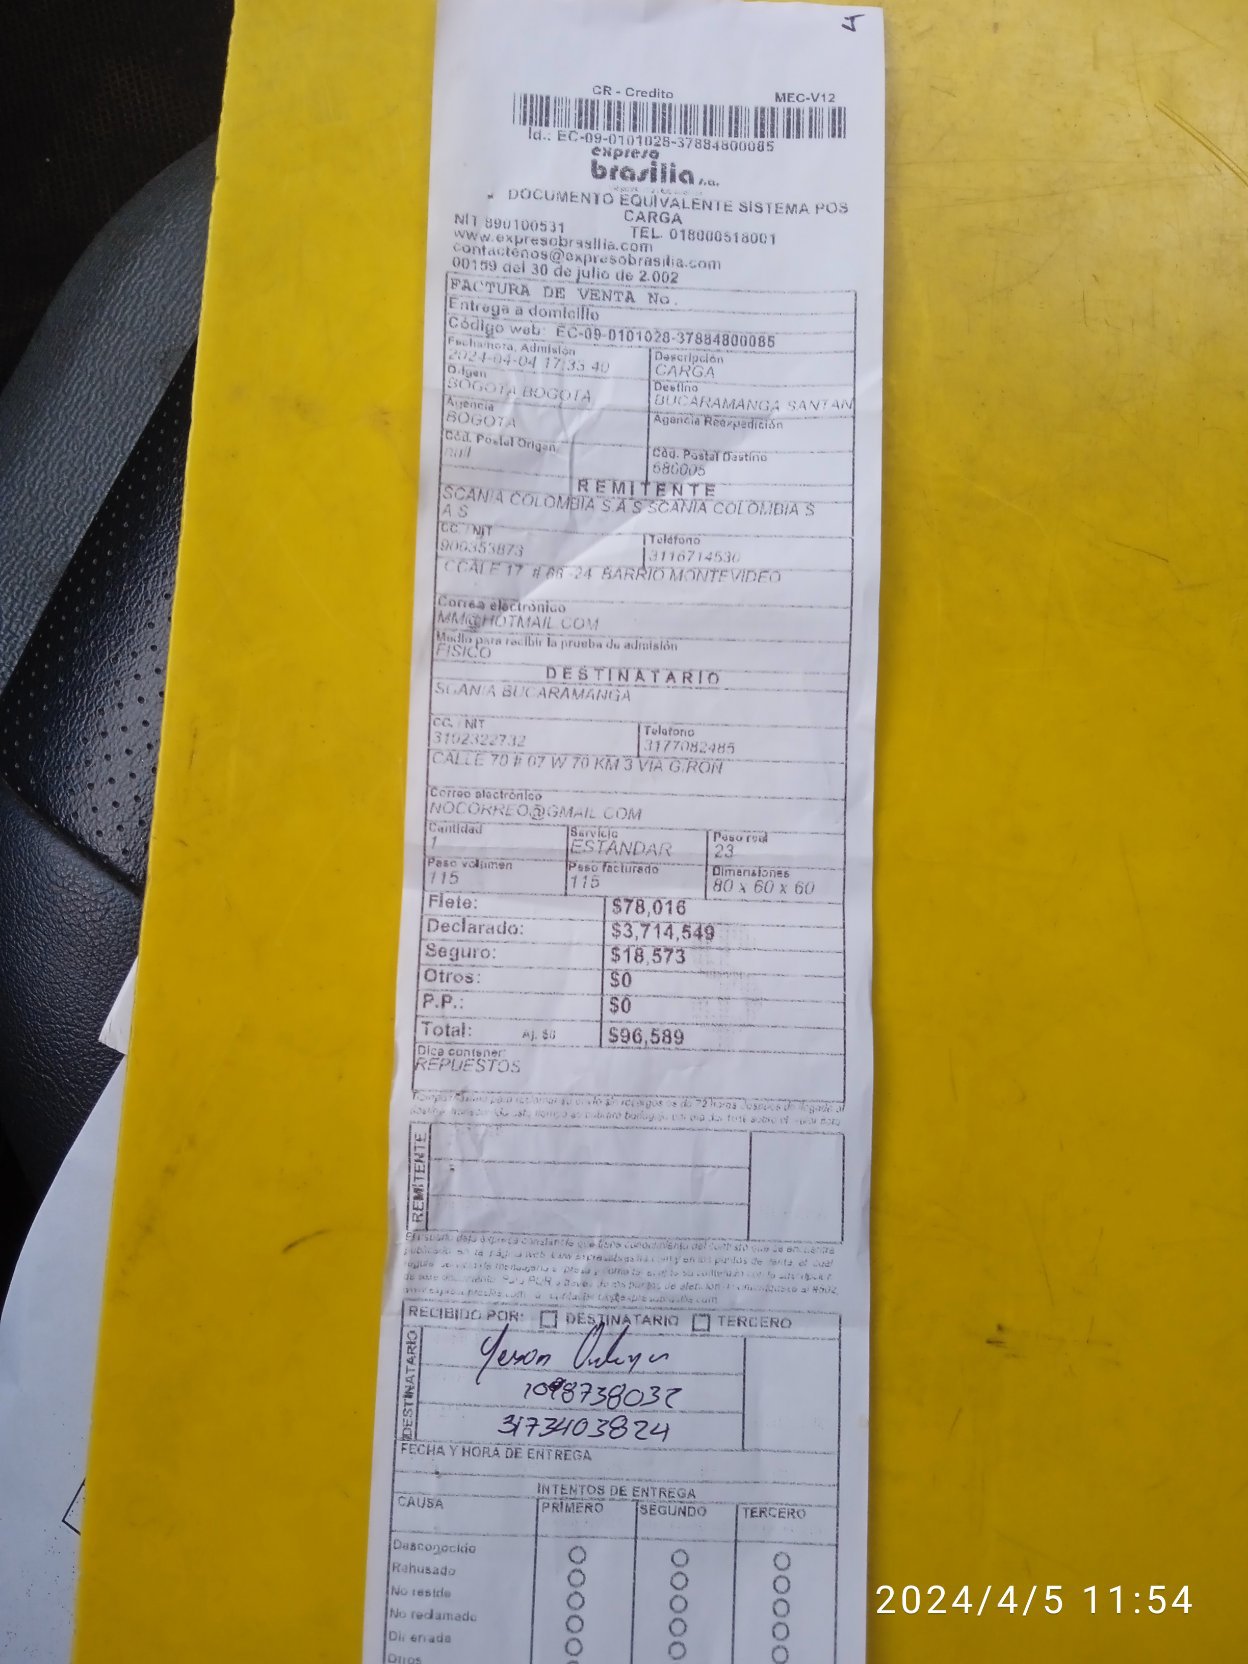 4
CR - Credito MEC-V12
Id.: EC-09-0101028-37884800085
expreso
brasilia s.a.
DOCUMENTO EQUIVALENTE SISTEMA POS
CARGA
NIT 890100531 TEL. 018000518001
www.expresobrasilia.com
contactenos@expresobrasilia.com
00159 del 30 de julio de 2.002
FACTURA DE VENTA No.
Entrega a domicilio
Código web: EC-09-0101028-37884800085
Fecha/hora, Admisión Descripción
2024-04-04 17:35:40 CARGA
Origen Destino
BOGOTA BOGOTA BUCARAMANGA SANTAN
Agencia Agencia Reexpedición
BOGOTA
Cód. Postal Origen Cód. Postal Destino
null 680005
REMITENTE
SCANIA COLOMBIA S.A.S SCANIA COLOMBIA S
A S
CC. / NIT Teléfono
900353873 3116714530
CCALE 17 # 68 -24 BARRIO MONTEVIDEO
Correo electrónico
MM@HOTMAIL.COM
Medio para recibir la prueba de admisión
FISICO
DESTINATARIO
SCANIA BUCARAMANGA
CC. / NIT Teléfono
3102322732 3177082485
CALLE 70 # 07 W 70 KM 3 VIA GIRON
Correo electrónico
NOCORREO@GMAIL.COM
Cantidad Servicio Peso real
1 ESTANDAR 23
Peso volumen Peso facturado Dimensiones
115 115 80 x 60 x 60
Flete: $78,016
Declarado: $3,714,549
Seguro: $18,573
Otros: $0
P.P.: $0
Total: Aj. $0 $96,589
Dice contener:
REPUESTOS
REMITENTE
RECIBIDO POR: DESTINATARIO TERCERO
DESTINATARIO
Yeson
1098738032
3173403824
FECHA Y HORA DE ENTREGA
INTENTOS DE ENTREGA
CAUSA PRIMERO SEGUNDO TERCERO
Desconocido
Rehusado
No reside
No reclamado
Dir. errada
Otros
2024/4/5 11:54